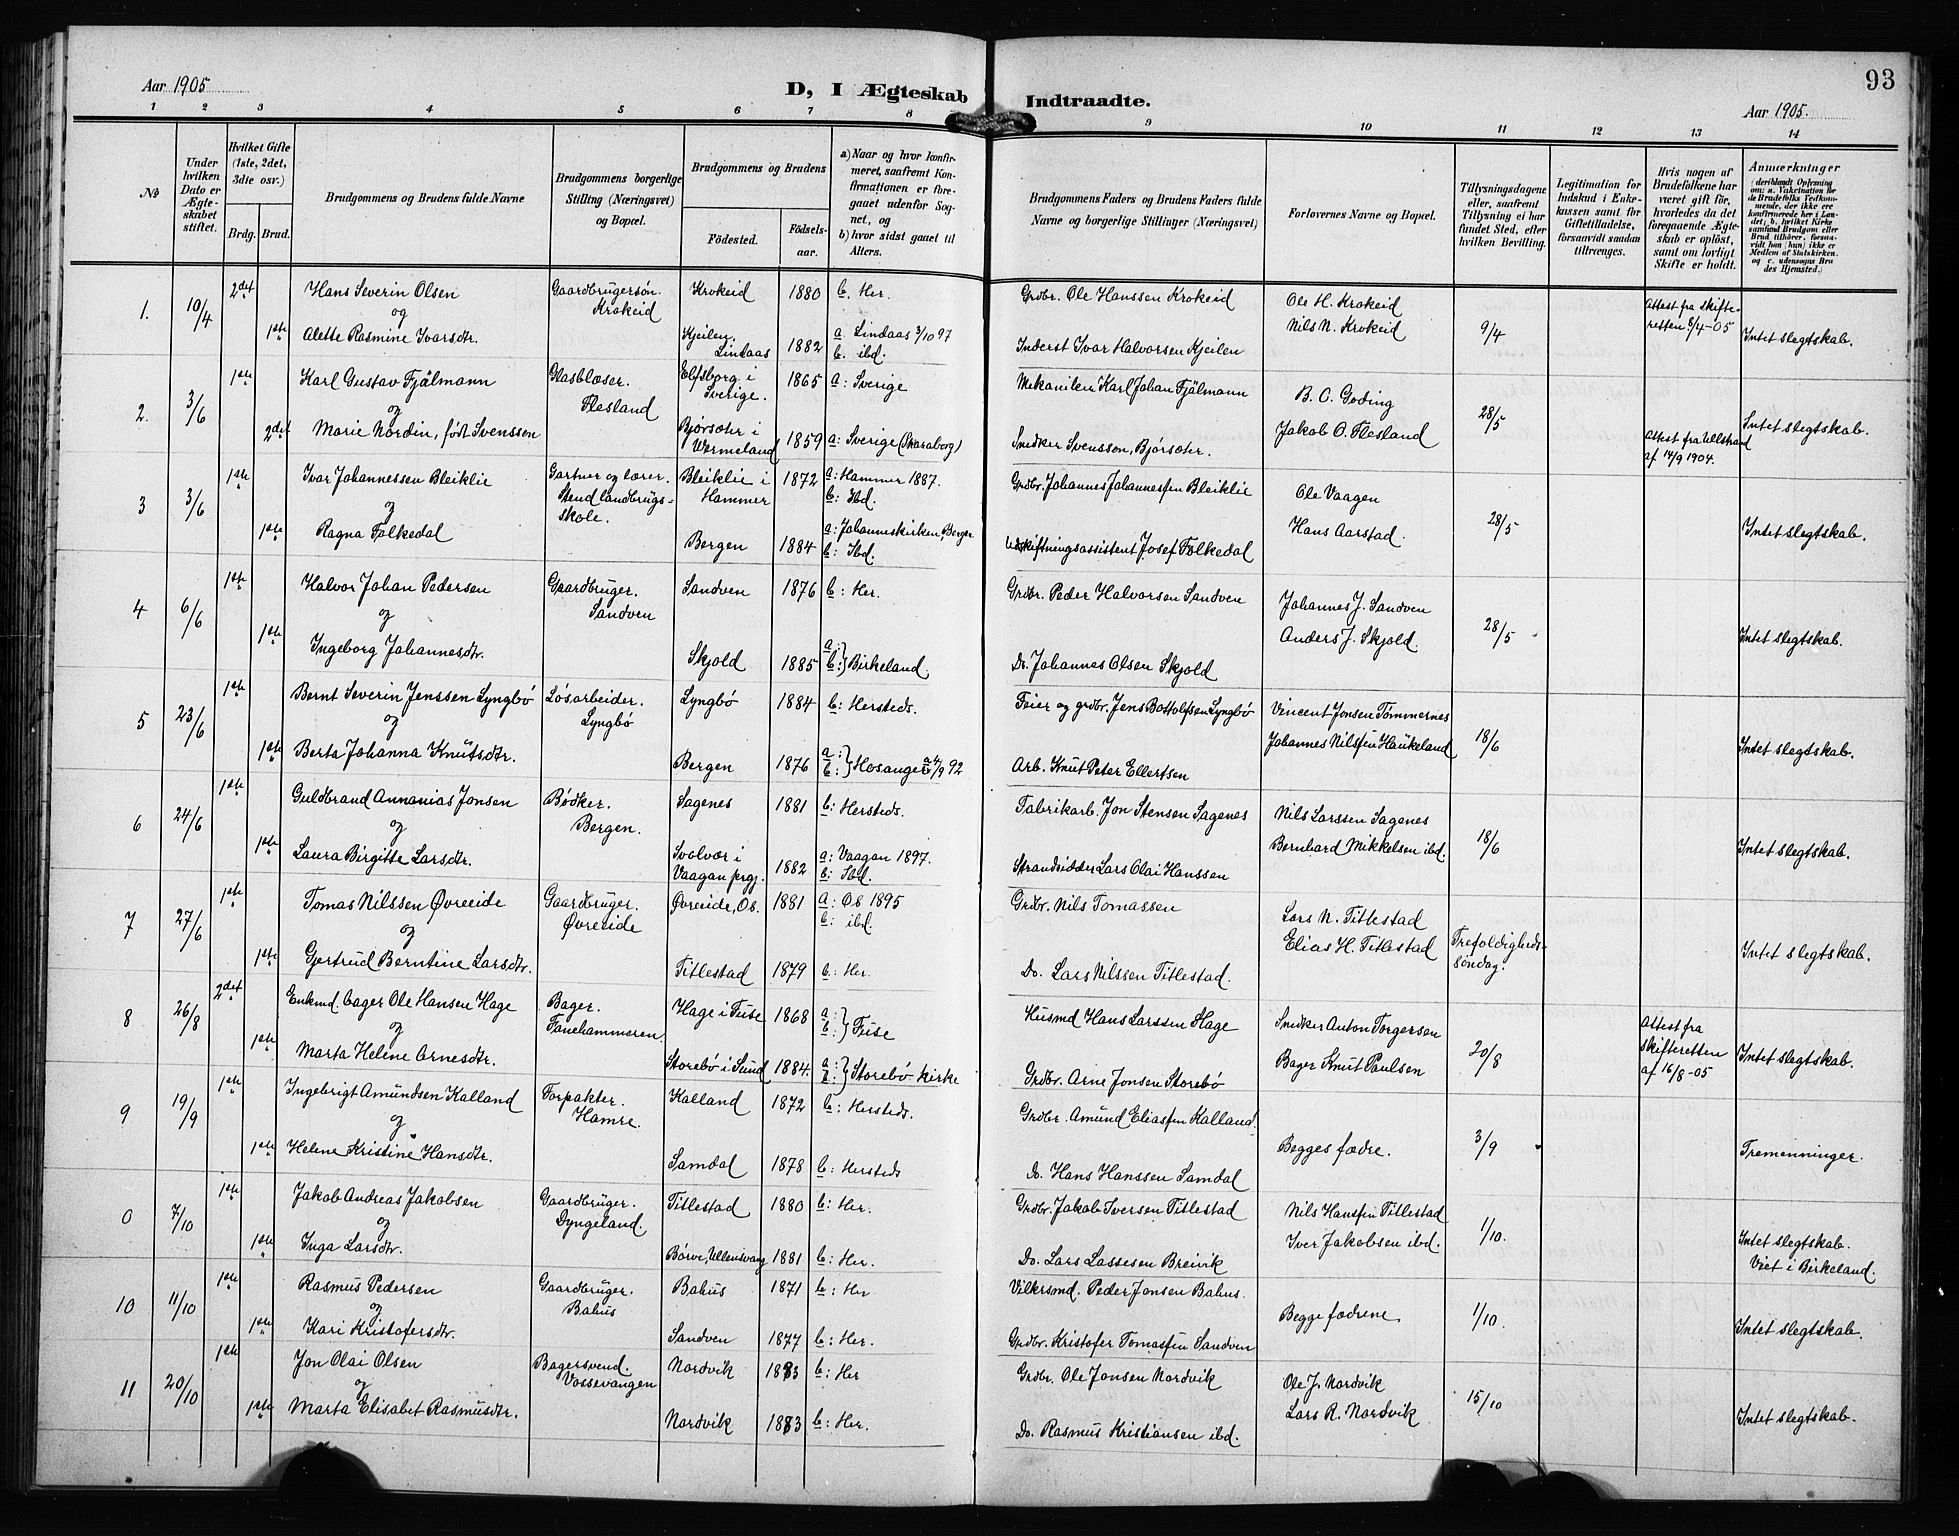 93
Aar 1905
D, I Ægteskab Indtraadte.
Aar 1905.
1 2 3 4 5 6 7 8 9 10 11 12 13 14
No
Under hvilken Dato er Ægteskabet stiftet.
Hvilket Gifte (1ste, 2det, 3die osv.)
Brdg. Brud.
Brudgommens og Brudens fulde Navne
Brudgommens borgerlige Stilling (Næringsvei) og Bopæl.
Brudgommens og Brudens
Fødested.
Fødselsaar.
a) Naar og hvor konfirmeret, saafremt Konfirmationen er foregaaet udenfor Sognet, og
b) hvor sidst gaaet til Alters.
Brudgommens Faders og Brudens Faders fulde Navne og borgerlige Stillinger (Næringsvei)
Forlovernes Navne og Bopæl.
Tillysningsdagene eller, saafremt Tillysning ei har fundet Sted, efter hvilken Bevilling.
Legitimation for Indskud i Enkekassen samt for Giftetilladelse, forsaavidt saadan tiltrænges.
Hvis nogen af Brudefolkene har været gift før, hvorledes da det foregaaende Ægteskab er opløst, samt om lovligt Skifte er holdt.
Anmerkninger
1. 10/4 2det Hans Severin Olsen Gaardbrugersøn. Krokeid Krokeid 1880 b. Her. Grdbr. Ole Hanssen Krokeid Ole H. Krokeid Attest fra skifteretten 8/4-05
og
1ste Alette Rasmine Ivarsdtr. Kjeilen, Lindaas 1882 a Lindaas 3/10 97 b. ibd. Inderst Ivar Halvorsen Kjeilen Nils N. Krokeid 9/4 Intet slegtskab.
2. 3/6 1ste Karl Gustav Fjälmann Glasblæser. Flesland Elfsborg i Sverige. 1865 a: Sverige Mekaniker Karl Johan Fjälmann B. C. Goding
og
2det Marie Nordin, født Svenssen Bjørsæter i Wermeland 1859 a: Sverige (Skaraborg) Snedker Svensson, Bjørsæter. Jakob O. Flesland 28/5 Attest fra Ullstrand af 14/9 1904. Intet slegtskab.
3 3/6 1ste Ivar Johannessen Bleiklie Gartner og lærer. Stend landbrugsskole. Bleiklie i Hammer 1872 a: Hammer 1887. b: Ibd. Grdbr. Johannes Johannessen Bleiklie Ole Vaagen
og
1ste Ragna Folkedal Bergen 1884 a: Johanneskirken, Bergen b: Ibd. Udskiftningsassistent Josef Folkedal Hans Aarstad. 28/5 Intet slegtskab.
4 6/6 1ste Halvor Johan Pedersen Gaardbruger. Sandven Sandven 1876 b: Her. Grdbr. Peder Halvorsen Sandven Johannes J. Sandven
og
1ste Ingeborg Johannesdtr. Skjold 1885 a: b: } Birkeland. Do. Johannes Olsen Skjold Anders J. Skjold. 28/5 Intet slegtskab.
5 23/6 1ste Bernt Severin Jenssen Lyngbö Løsarbeider. Lyngbö Lyngbö 1884 b: Hersteds. Feier og grdbr. Jens Bottolfsen Lyngbö Vincent Jonsen Tömmernes
og
1ste Berta Johanna Knutsdtr. Bergen 1876 a: b: } Hosanger 4/9 92 Arb. Knut Peter Ellertsen Johannes Nilssen Haukeland 18/6 Intet slegtskab.
6 24/6 1ste Guldbrand Annanias Jonsen Bødker. Bergen. Sagenes 1881 b: Hersteds. Fabrikarb. Jon Stensen Sagenes Nils Larssen Sagenes
og
1ste Laura Birgitte Larsdtr. Svolvær i Vaagan prgj. 1882 a: Vaagan 1897. b: Ibd. Strandsidder Lars Olai Hanssen Bernhard Mikkelsen ibd. 18/6 Intet slegtskab.
7 27/6 1ste Tomas Nilssen Øvreeide Gaardbruger. Øvreeide Øvreeide, Os. 1881 a: Os 1895 b: ibd. Grdbr. Nils Tomassen Lars N. Titlestad
og
1ste Gjertrud Berntine Larsdtr. Titlestad 1879 b: Her. Do. Lars Nilssen Titlestad. Elias H. Titlestad Trefoldighedssøndag. Intet slegtskab.
8 26/8 2det Enkmd. bager Ole Hansen Hage Bager. Fanehammeren. Hage i Fuse 1868 a: b: } Fuse Husmd Hans Larssen Hage Snedker Anton Torgersen Attest fra skifteretten af 16/8-05
og
1ste Marta Helene Arnesdtr. Storebö i Sund 1884. a: b: } Storebö kirke Grdbr. Arne Jonsen Storebö Bager Knut Paulsen 20/8 Intet slegtskab.
9 19/9 1ste Ingebrigt Amundsen Kalland Forpakter. Hamre. Kalland 1872 b: Hersteds. Grdbr. Amund Eliassen Kalland.
og
1ste Helene Kristine Hansdtr. Samdal 1878 b: Hersteds Do. Hans Hanssen Samdal Begges fædre. 3/9 Tremenninger.
0 7/10 1ste Jakob Andreas Jakobsen Gaardbruger. Dyngeland. Titlestad 1880 b: Her. Grdbr. Jakob Iversen Titlestad Nils Hanssen Titlestad
og
1ste Inga Larsdtr. Børve, Ullensvang 1881 b: Her. Do. Lars Lassesen Breivik Iver Jakobsen ibd. 1/10. Intet slegtskab. Viet i Birkeland.
10 11/10 1ste Rasmus Pedersen Gaardbruger. Bahus Bahus 1871 b: Her Vilkersmd. Peder Jonsen Bahus.
og
1ste Kari Kristofersdtr. Sandven 1877 b: Her. Grdbr. Kristofer Tomassen Sandven Begge fædrene 1/10. Intet slegtskab.
11 20/10 1ste Jon Olai Olsen Bagersvend. Vossevangen Nordvik 1883 b: Her Grdbr. Ole Jonsen Nordvik Ole J. Nordvik
og
1ste Marta Elisabet Rasmusdtr. Nordvik 1883 b: Her. Do. Rasmus Kristiansen ibd. Lars R. Nordvik 15/10 Intet slegtskab.